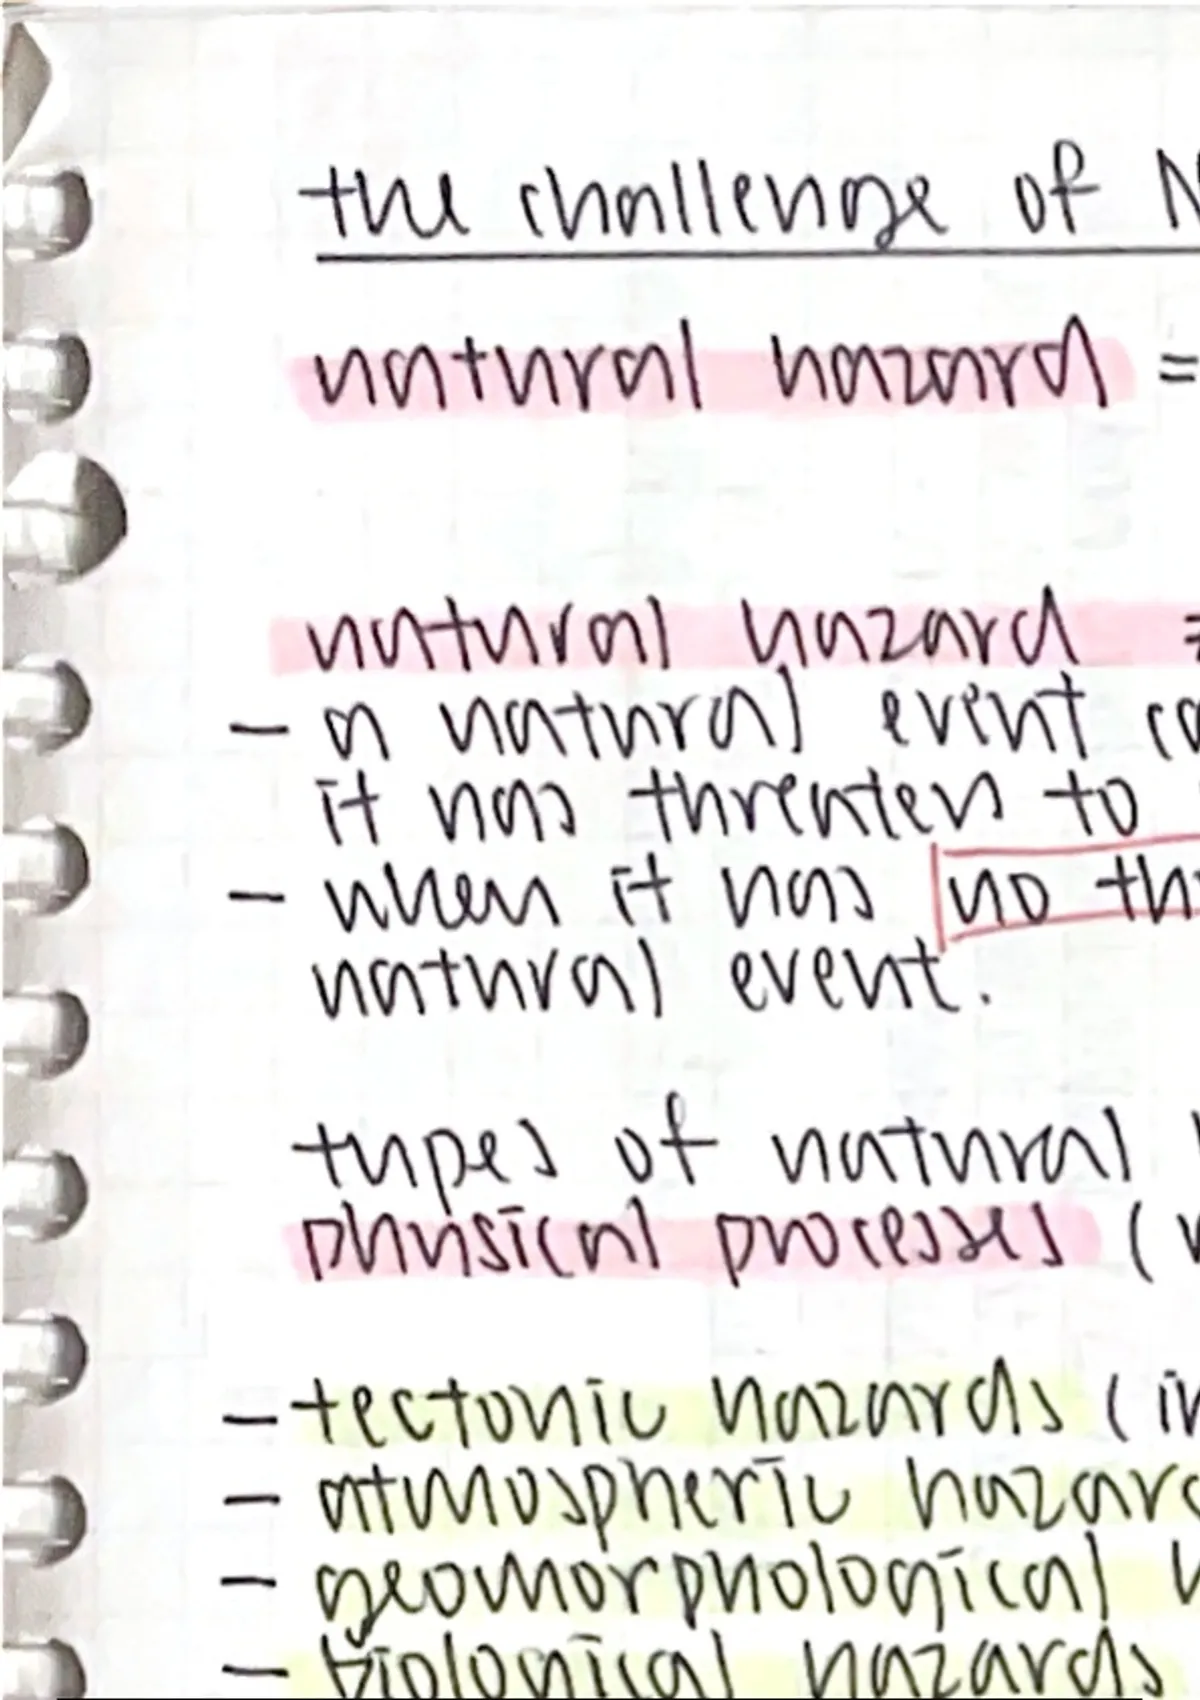 the challenge of N
natural hazard =
natural hazard =
- a natural event ca
it has threaten to
- when it has no thr
natural event.
types of natural h
physical processes (
- tectonic hazards (in
- atmospheric hazard
- geomorphological h
- biological hazards